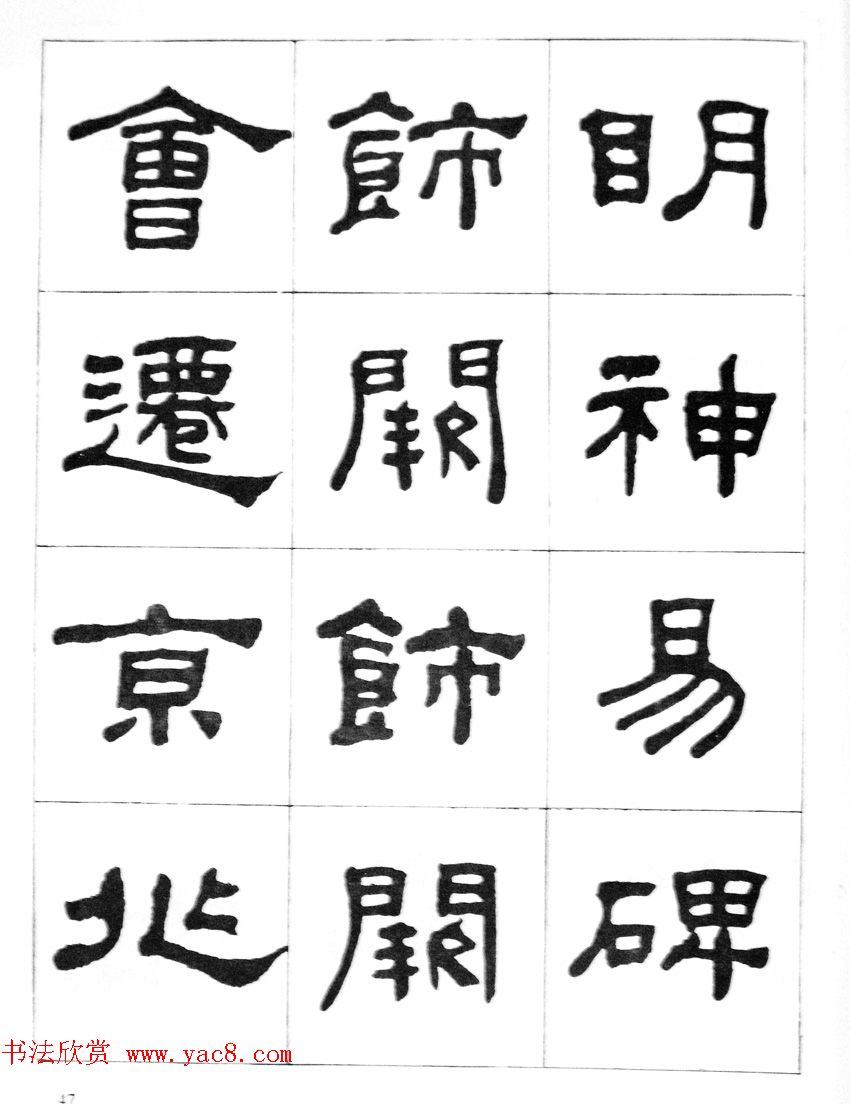 明神易碑
飾闕飾闕
會遷京兆
书法欣赏 www.yac8.com
47